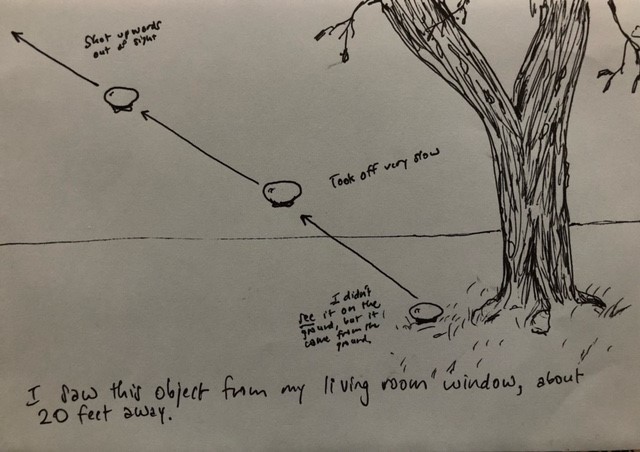 Shot upwards
out of sight
Took off very slow
I didn't
see it on the
ground, but it
came from the
ground.
I saw this object from my living room window, about
20 feet away.